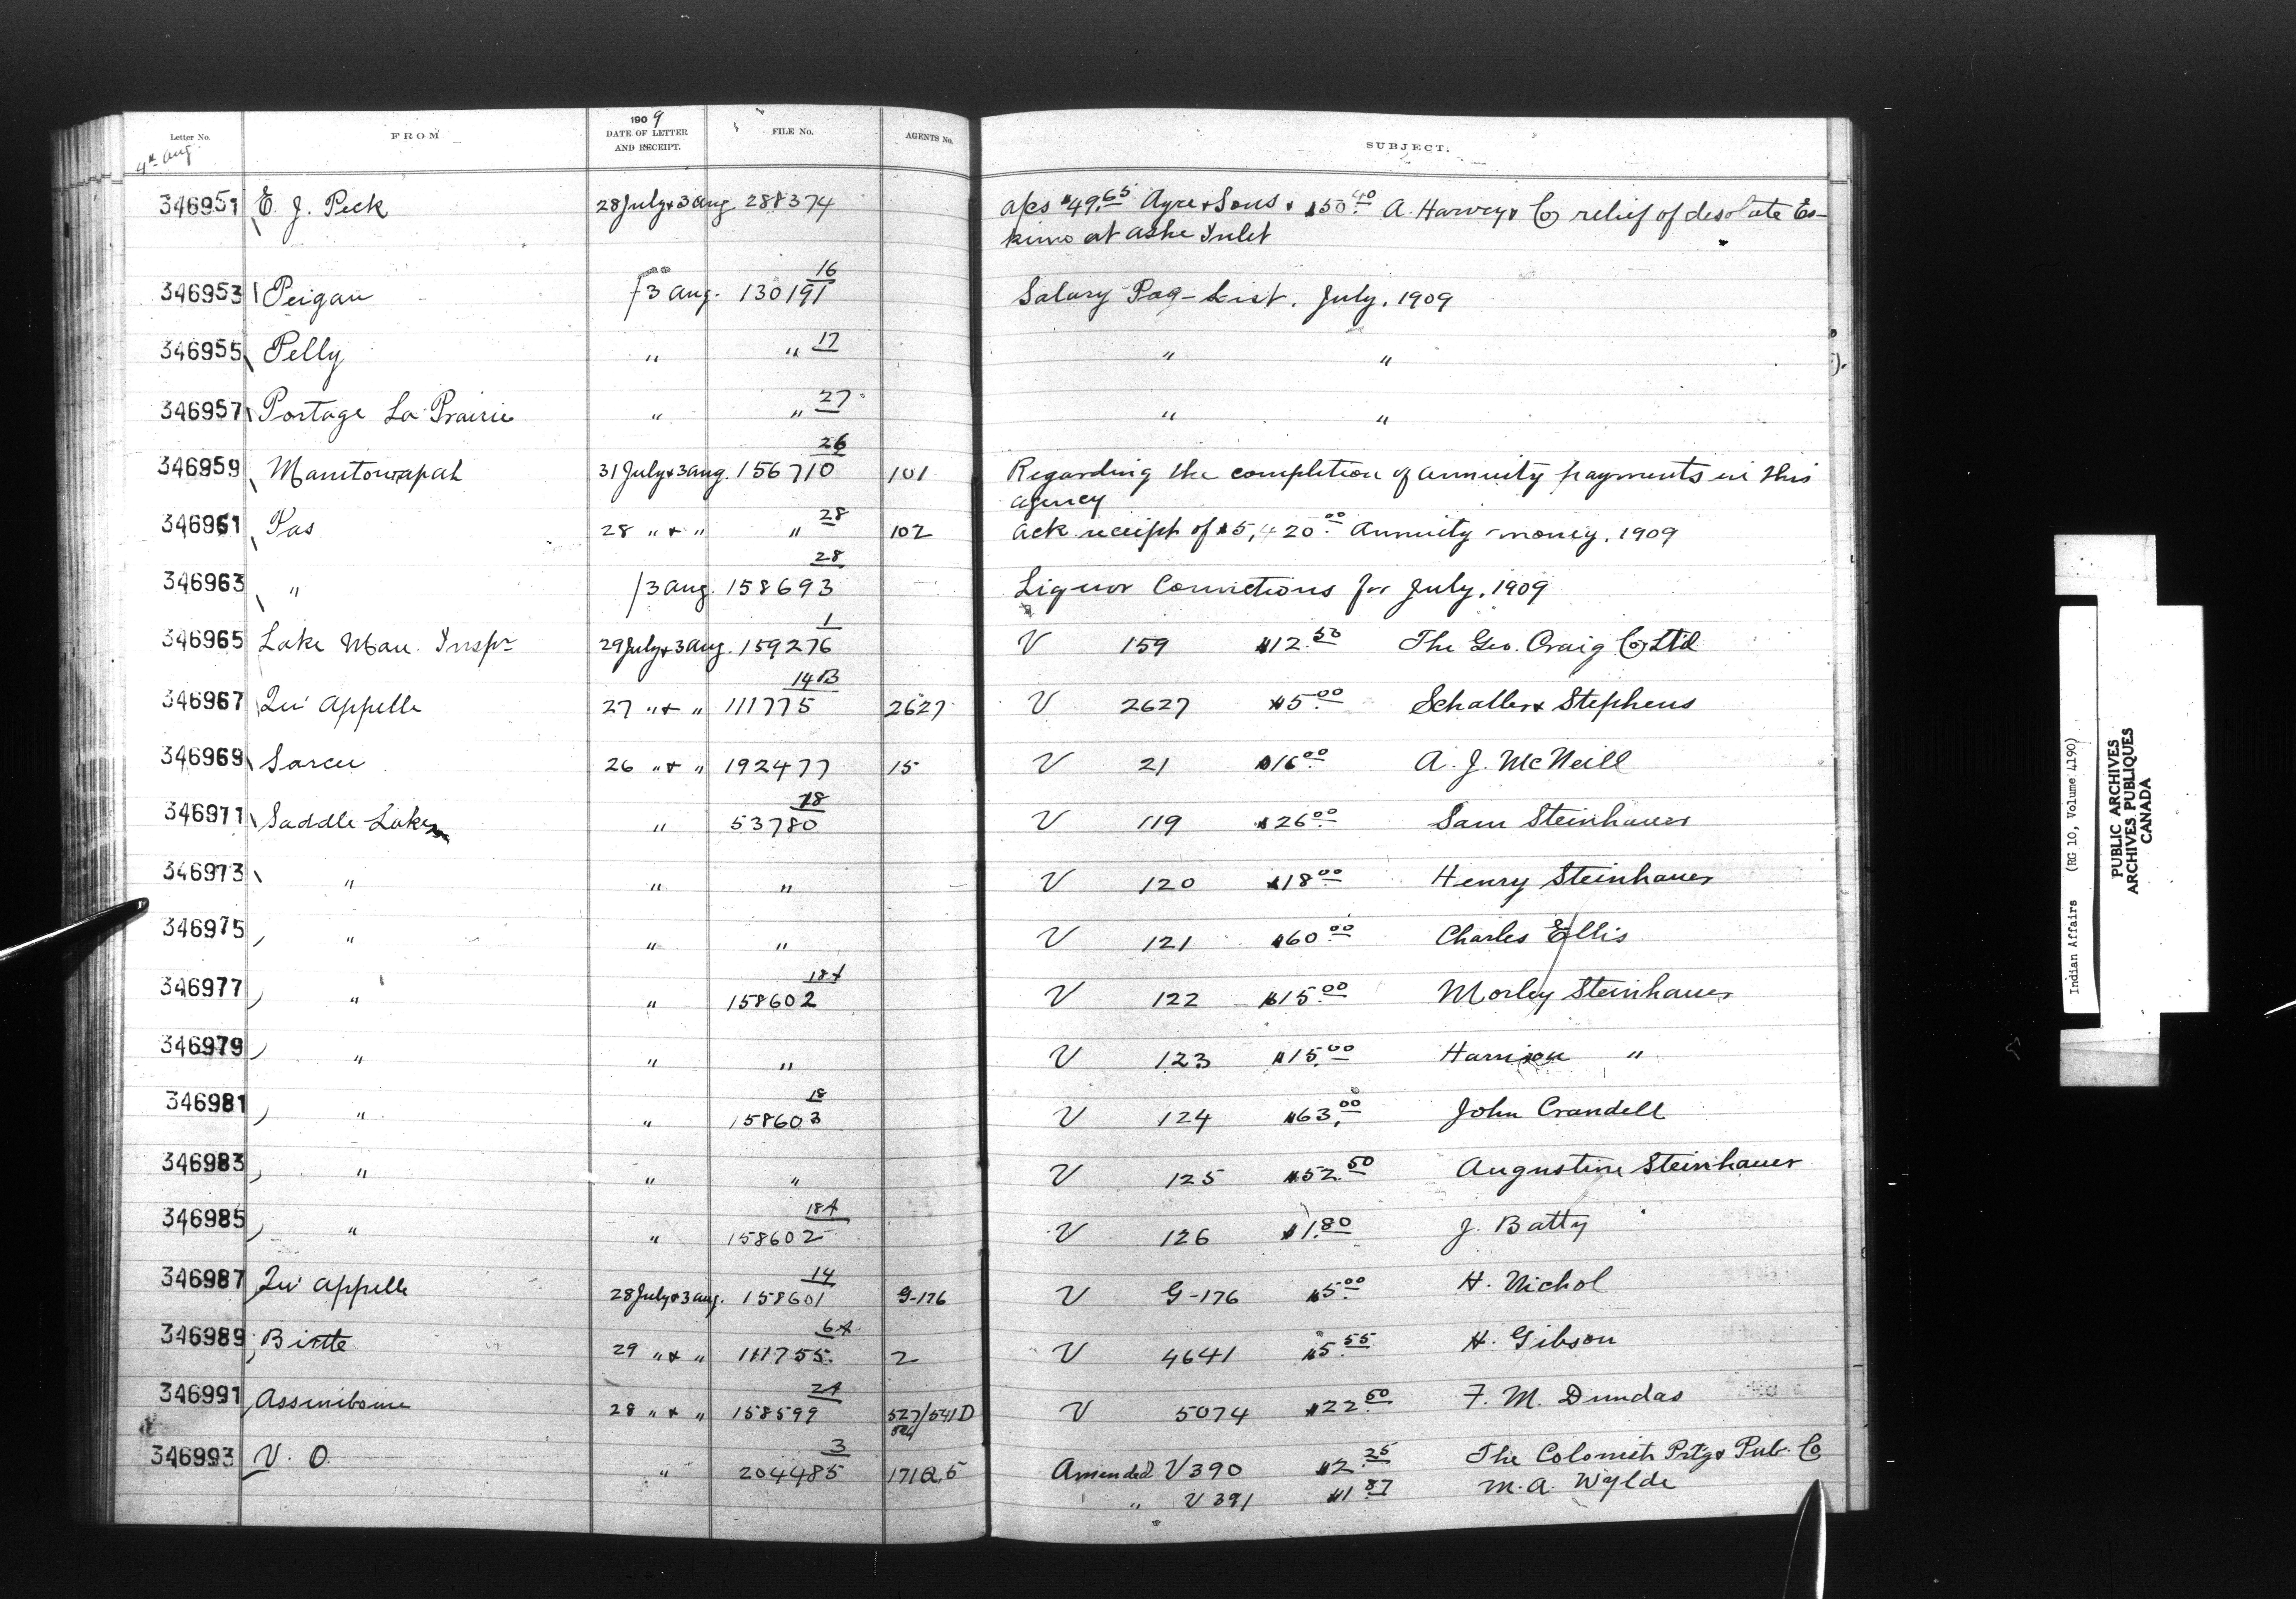 Letter No. FROM 1909 DATE OF LETTER AND RECEIPT. FILE No. AGENTS No. SUBJECT.
4th Aug
346951 E. J. Peck 28 July & 3 Aug. 288374 a/cs $49.65 Ayre & Sons & $50.40 A. Harvey & Co relief of desolate Es-
kimo at Ashe Inlet
346953 Peigan 3 Aug. 130191 16 Salary Pag-List. July, 1909
346955 Pelly " " 17 " "
346957 Portage La Prairie " " 27 " "
346959 Manitowapah 31 July & 3 Aug. 156710 26 101 Regarding the completion of annuity payments in this
agency
346961 Pas 28 " & " " 28 102 Ack receipt of $5,420.00 Annuity money, 1909
346963 " 3 Aug. 158693 28 Liquor Convictions for July, 1909
346965 Lake Man. Inspr 29 July & 3 Aug. 159276 1 V 159 $12.50 The Geo. Craig Co Ltd
346967 Qu'Appelle 27 " & " 111775 14B 2627 V 2627 $5.00 Schaller & Stephens
346969 Sarcee 26 " & " 192477 15 V 21 $16.00 A. J. McNeill
346971 Saddle Lake " 53780 18 V 119 $26.00 Sam Steinhauer
346973 " " " V 120 $18.00 Henry Steinhauer
346975 " " " V 121 $60.00 Charles Ellis
346977 " " 158602 18A V 122 $15.00 Morley Steinhauer
346979 " " " V 123 $15.00 Harrison "
346981 " " 158603 18 V 124 $63.00 John Crandell
346983 " " " V 125 $52.50 Augustine Steinhauer
346985 " " 158602 18A V 126 $1.80 J. Batty
346987 Qu'Appelle 28 July & 3 Aug. 158601 14 G-176 V G-176 $5.00 H. Nichol
346989 Birtle 29 " & " 111755 6A 2 V 4641 $5.55 H. Gibson
346991 Assiniboine 28 " & " 158599 2A 527/541D V 5074 $22.50 F. M. Dundas
346993 V. O. " 204485 3 Amended V 390 $2.25 The Colonist Prtg & Pub. Co
" V 391 $1.87 M. A. Wylde
Indian Affairs (RG 10, Volume 4190)
PUBLIC ARCHIVES
ARCHIVES PUBLIQUES
CANADA